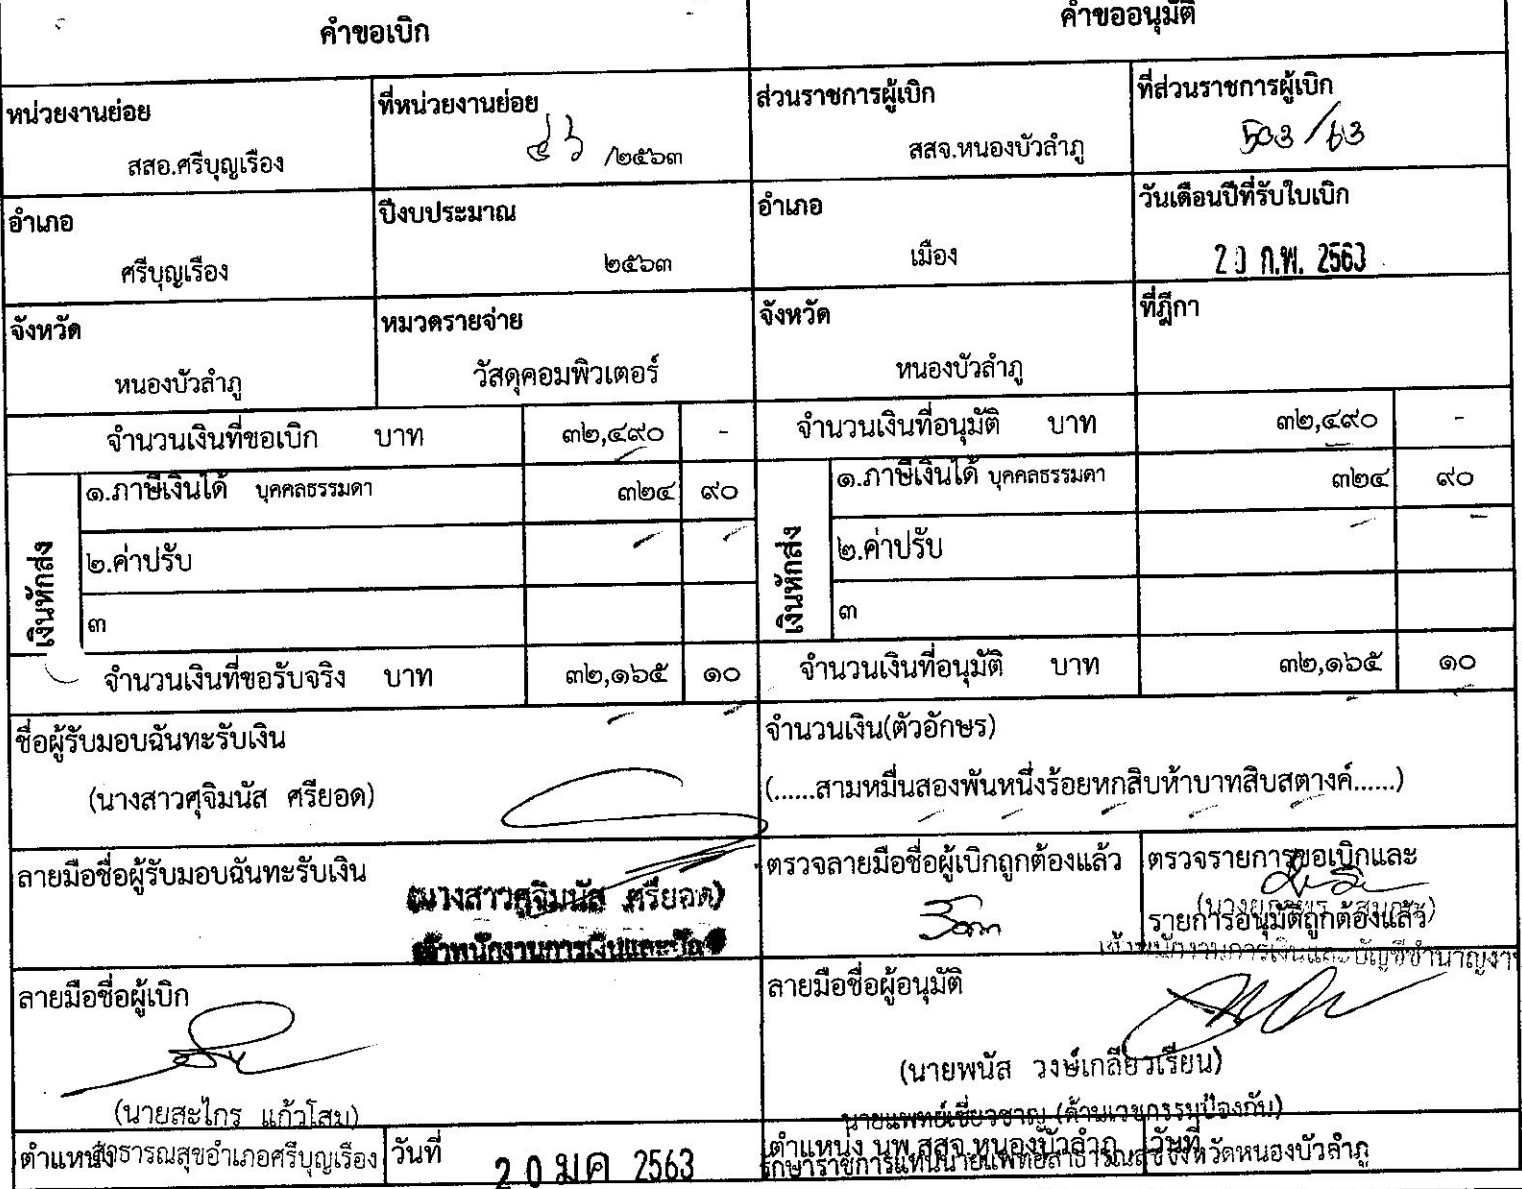 คำขอเบิก
คำขออนุมัติ
หน่วยงานย่อย
สสอ.ศรีบุญเรือง
ที่หน่วยงานย่อย
๕๖ /๒๕๖๓
ส่วนราชการผู้เบิก
สสจ.หนองบัวลำภู
ที่ส่วนราชการผู้เบิก
503/63
อำเภอ
ศรีบุญเรือง
ปีงบประมาณ
๒๕๖๓
อำเภอ
เมือง
วันเดือนปีที่รับใบเบิก
20 ก.พ. 2563
จังหวัด
หนองบัวลำภู
หมวดรายจ่าย
วัสดุคอมพิวเตอร์
จังหวัด
หนองบัวลำภู
ที่ฎีกา
จำนวนเงินที่ขอเบิก บาท ๓๒,๔๙๐ -
จำนวนเงินที่อนุมัติ บาท ๓๒,๔๙๐ -
เงินหักส่ง
๑.ภาษีเงินได้ บุคคลธรรมดา ๓๒๔ ๙๐
๒.ค่าปรับ
๓
เงินหักส่ง
๑.ภาษีเงินได้ บุคคลธรรมดา ๓๒๔ ๙๐
๒.ค่าปรับ - -
๓
จำนวนเงินที่ขอรับจริง บาท ๓๒,๑๖๕ ๑๐
จำนวนเงินที่อนุมัติ บาท ๓๒,๑๖๕ ๑๐
ชื่อผู้รับมอบฉันทะรับเงิน
(นางสาวศุจิมนัส ศรียอด)
จำนวนเงิน(ตัวอักษร)
(......สามหมื่นสองพันหนึ่งร้อยหกสิบห้าบาทสิบสตางค์......)
ลายมือชื่อผู้รับมอบฉันทะรับเงิน
(นางสาวศุจิมนัส ศรียอด)
เจ้าพนักงานการเงินและบัญชี
ตรวจลายมือชื่อผู้เบิกถูกต้องแล้ว
ตรวจรายการขอเบิกและ
รายการอนุมัติถูกต้องแล้ว
เจ้าพนักงานการเงินและบัญชีชำนาญงาน
ลายมือชื่อผู้เบิก
(นายสะไกร แก้วโสม)
ลายมือชื่อผู้อนุมัติ
(นายพนัส วงษ์เกลียวเรียน)
นายแพทย์เชี่ยวชาญ (ด้านเวชกรรมป้องกัน)
ตำแหน่ง สาธารณสุขอำเภอศรีบุญเรือง
วันที่ 20 มค 2563
ตำแหน่ง นพ.สสจ.หนองบัวลำภู วันที่
รักษาราชการแทนนายแพทย์สาธารณสุขจังหวัดหนองบัวลำภู